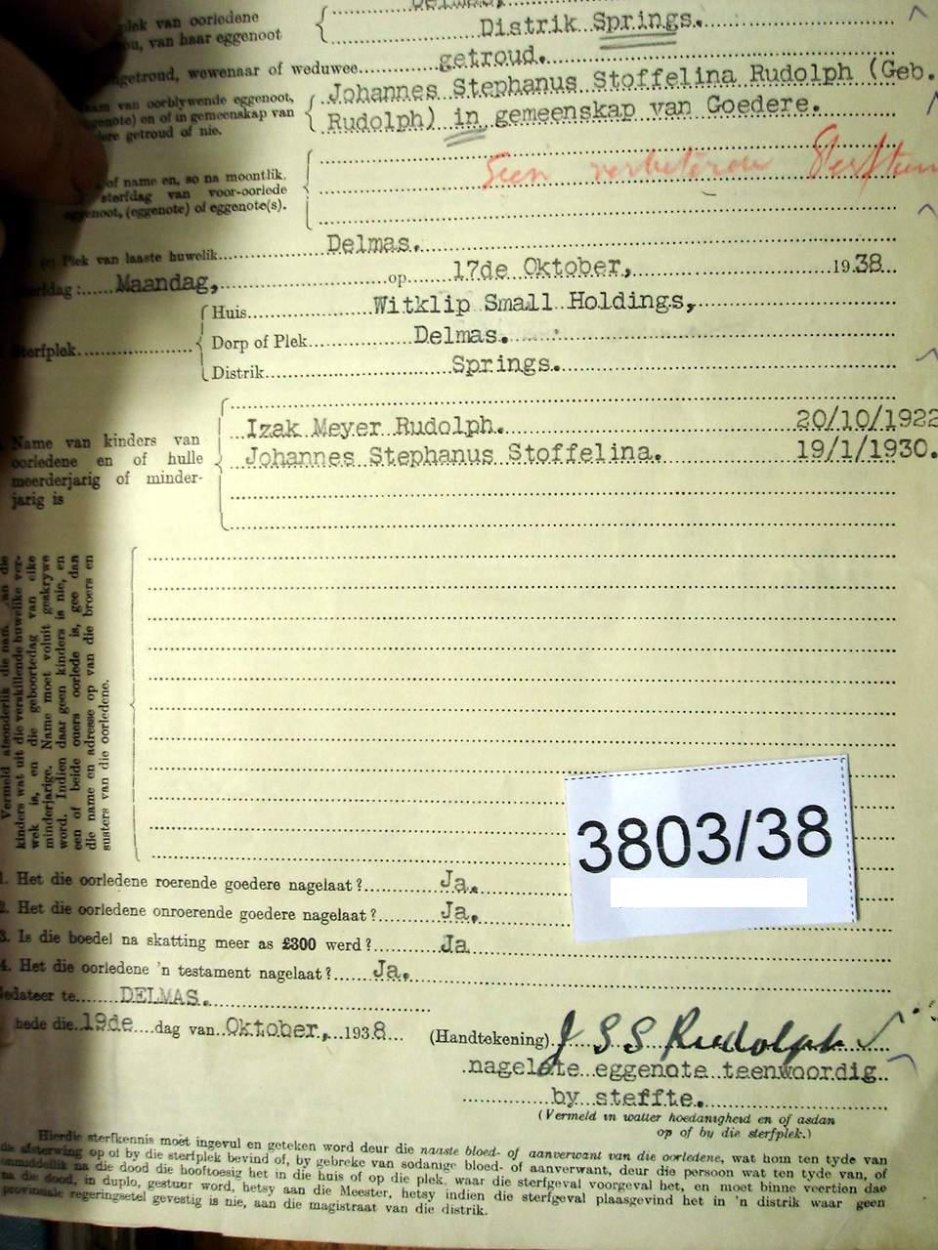 plek van oorledene
ou, van haar eggenoot
Distrik Springs.
getroud, wewenaar of weduwee getroud.
van oorblywende eggenoot,
en of in gemeenskap van
getroud of nie.
Johannes Stephanus Stoffelina Rudolph (Geb.
Rudolph) in gemeenskap van Goedere.
of name en, so na moontlik.
sterfdag van voor-oorlede
eggenoot, (eggenote) of eggenote(s).
(c) Plek van laaste huwelik Delmas.
Maandag, op 17de Oktober, 1938
Sterfplek
Huis Witklip Small Holdings,
Dorp of Plek Delmas.
Distrik Springs.
Name van kinders van
oorledene en of hulle
meerderjarig of minder-
jarig is
Izak Meyer Rudolph. 20/10/1922
Johannes Stephanus Stoffelina. 19/1/1930.
Vermeld afsonderlik die
kinders wat uit die verskillende huwelike ver-
wek is, en die geboortedag van elke
minderjarige. Name moet voluit geskrywe
word. Indien daar geen kinders is nie, en
een of beide ouers oorlede is, gee dan
die name en adresse op van die broers en
susters van die oorledene.
3803/38
1. Het die oorledene roerende goedere nagelaat? Ja.
2. Het die oorledene onroerende goedere nagelaat? Ja.
3. Is die boedel na skatting meer as £300 werd? Ja
4. Het die oorledene 'n testament nagelaat? Ja.
Gedateer te DELMAS.
hede die 19de dag van Oktober, 1938
(Handtekening) J S S Rudolph
nagelate eggenote teenwoordig
by steffte.
(Vermeld in watter hoedanigheid en of asdan
op of by die sterfplek.)
Hierdie sterfkennis moet ingevul en geteken word deur die naaste bloed- of aanverwant van die oorledene, wat hom ten tyde van
die afsterwing op of by die sterfplek bevind of, by gebreke van sodanige bloed- of aanverwant, deur die persoon wat ten tyde van, of
onmiddellik na die dood die hooftoesig het in die huis of op die plek waar die sterfgeval voorgeval het, en moet binne veertien dae
na die dood, in duplo, gestuur word, hetsy aan die Meester, hetsy indien die sterfgeval plaasgevind het in 'n distrik waar geen
provinsiale regeringsetel gevestig is nie, aan die magistraat van die distrik.